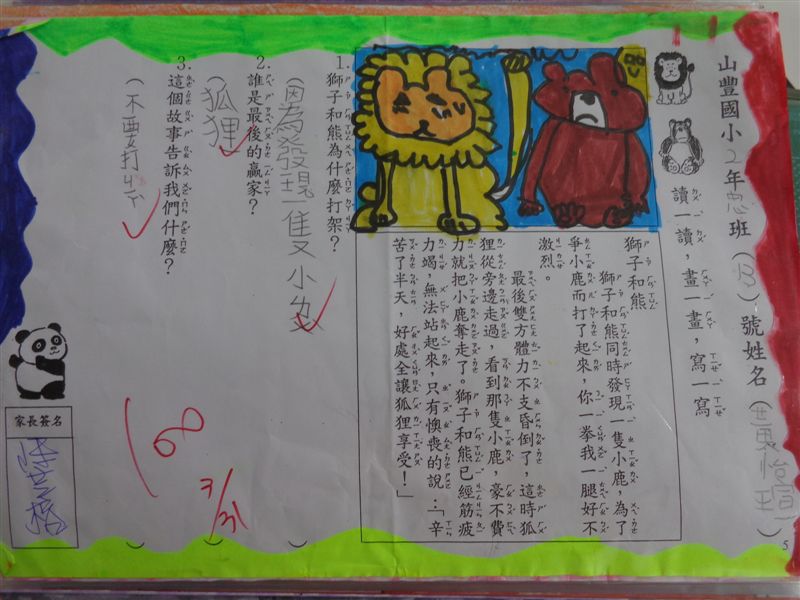 山豐國小2年忠班（13）號姓名（）
讀一讀，畫一畫，寫一寫
獅子和熊
獅子和熊同時發現一隻小鹿，為了
爭小鹿而打了起來，你一拳我一腿好不
激烈。
最後雙方體力不支昏倒了，這時狐
狸從旁邊走過，看到那隻小鹿，豪不費
力就把小鹿奪走了。獅子和熊已經筋疲
力竭，無法站起來，只有懊喪的說：「辛
苦了半天，好處全讓狐狸享受！」
1.獅子和熊為什麼打架？
（因為發現一隻小ㄌㄨˋ）
2.誰是最後的贏家？
（狐狸）
3.這個故事告訴我們什麼？
（不要打ㄐㄧㄚˋ）
100
3/31
家長簽名
5